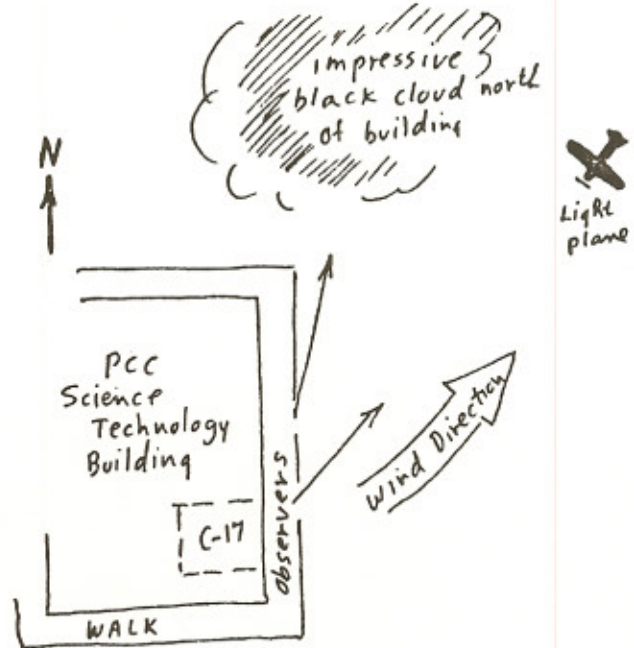 impressive
black cloud north
of building
N
Light
plane
PCC
Science
Technology
Building
C-17
Observers
Wind Direction
WALK